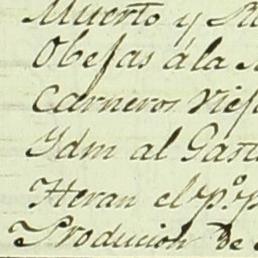 Muerto y Su
Obejas á la
Carneros Viej
Ydm al Gast
Heran el p.º p
Producion de